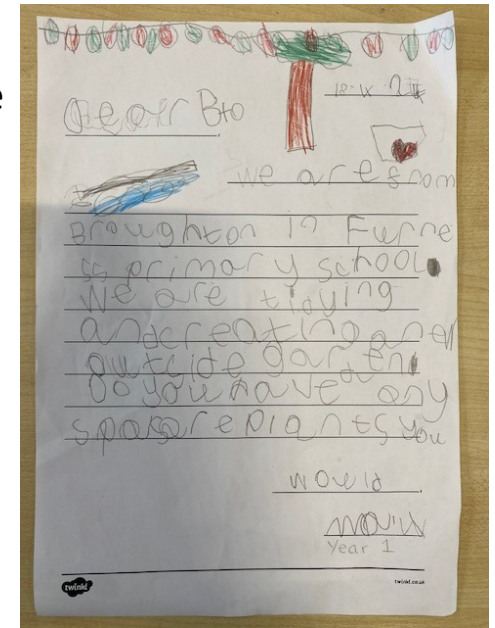 Dear Bto
we are from
Broughton in Furne
ss primary school.
We are tidying
and creating a new
outcide garden.
Do you have any
spare plants you
would
Year 1
twinkl
twinkl.co.uk